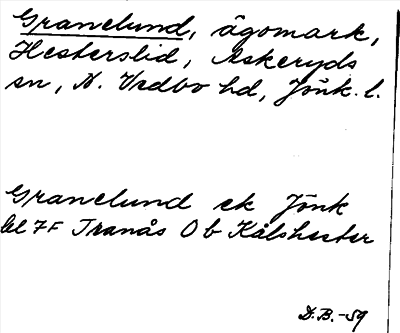 Granelund, ägomark,
Hesterslid, Askeryds
sn, N. Vedbo hd, Jönk. l.
Granelund ek Jönk
bl 7F Tranås 0 b Kålshester
D.B.-59